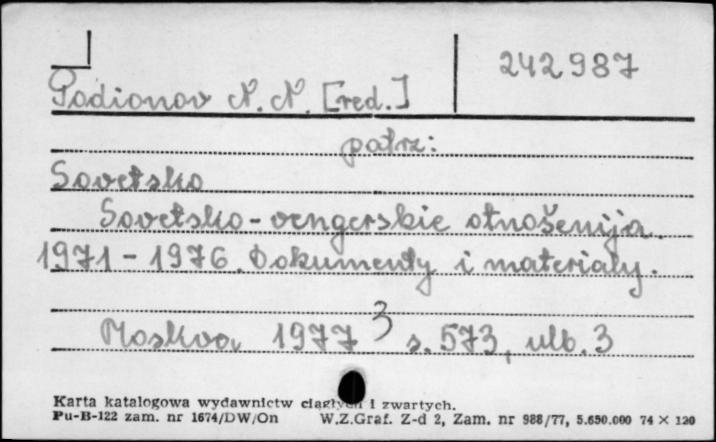 242987
Rodionov N. N. [red.]
patrz:
Sovetsko
Sovetsko-vengerskie otnošenija.
1971-1976. Dokumenty i materialy.
Moskva 1977 3 s. 573, ulb. 3
Karta katalogowa wydawnictw ciągłych i zwartych.
Pu-B-122 zam. nr 1674/DW/On W.Z.Graf. Z-d 2, Zam. nr 988/77, 5.650.000 74 × 120